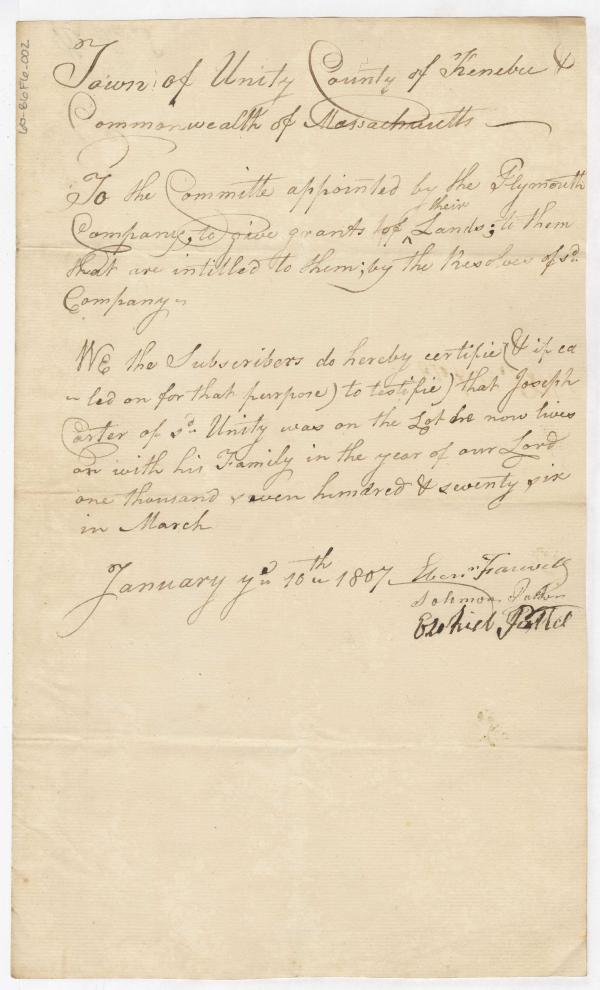 Town of Unity County of Kenebec &
Commonwealth of Massachusetts
To the Committe appointed by the Plymouth
Company, to give grants of their Lands; to them
that are intitled to them; by the Resolves of sd.
Company
We the Subscribers do hereby certifie (& if ca
led on for that purpose) to testifie) that Joseph
Carter of sd. Unity was on the Lot he now lives
on with his Family in the year of our Lord
one thousand seven hundred & seventy six
in March
January ye 10th 1807 Eben Farwell
Solomon
Ezekiel Pattee